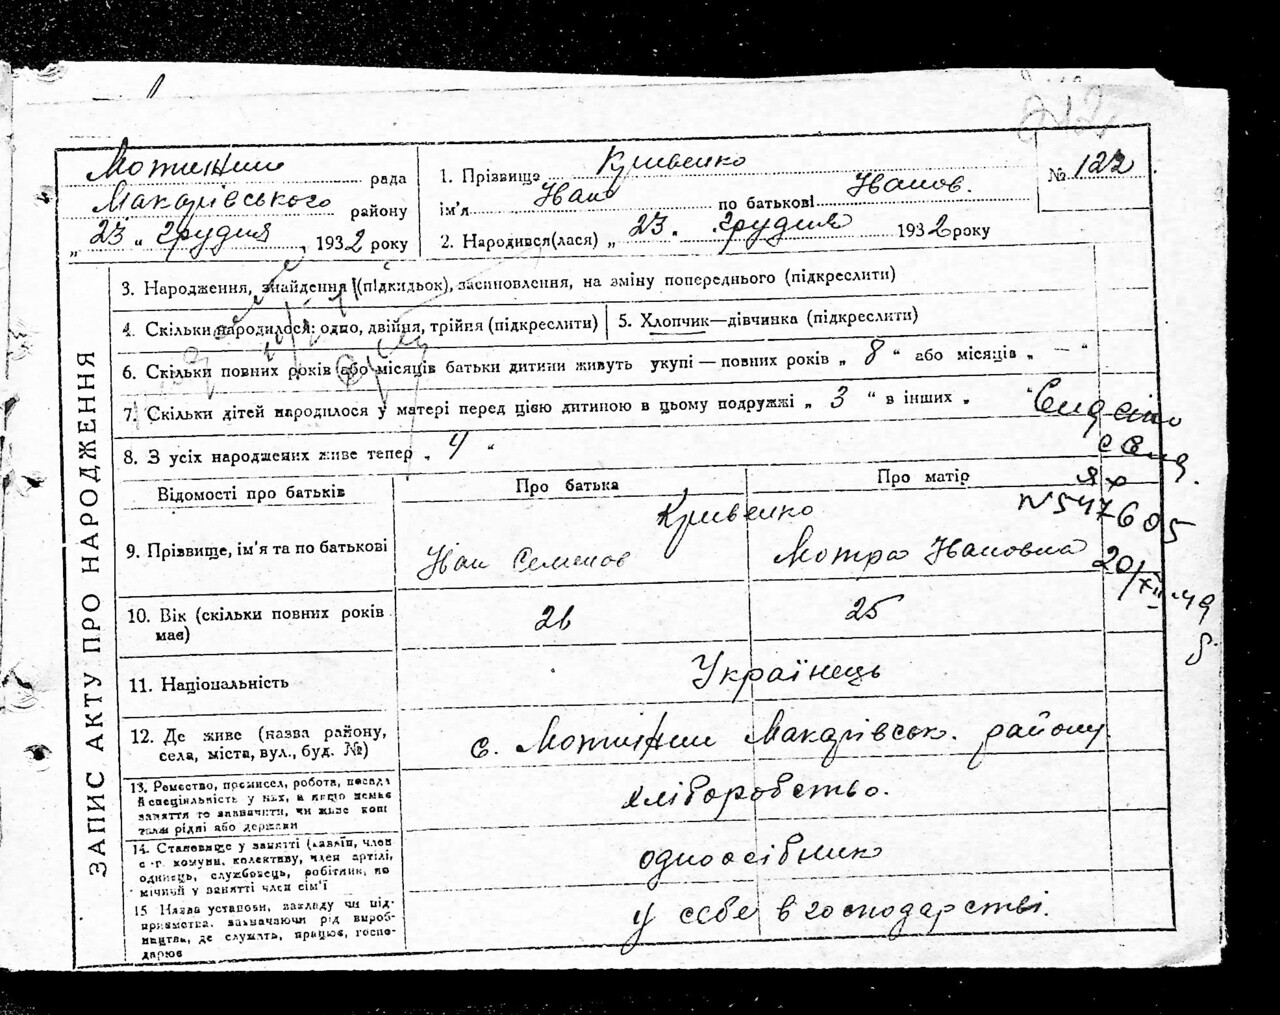 Мотижин рада
Макарівського району
„ 23 „ грудня 1932 року
1. Прізвище Кривенко
ім'я Іван по батькові Іванов.
2. Народився(лася) „ 23. грудня 1932 року
№ 122
ЗАПИС АКТУ ПРО НАРОДЖЕННЯ
3. Народження, знайдення (підкидьок), засиновлення, на зміну попереднього (підкреслити)
4. Скільки народилося: одно, двійня, трійня (підкреслити) 5. Хлопчик—дівчинка (підкреслити)
6. Скільки повних років або місяців батьки дитини живуть укупі — повних років „ 8 “ або місяців „ — “
7. Скільки дітей народилося у матері перед цією дитиною в цьому подружжі „ 3 “ в інших „ “
8. З усіх народжених живе тепер „ 4 “
Відомості про батьків Про батька Про матір
Кривенко
9. Прізвище, ім'я та по батькові Іван Семенов Мотра Івановна
N 547605
20/XII-49
10. Вік (скільки повних років має) 26 25
11. Національність Українець
12. Де живе (назва району, села, міста, вул., буд. №) с. Мотижин Макарівськ. району
13. Ремество, промисел, робота, посада й спеціяльність у них, а якщо немає заняття то зазначити, чи живе кош том рідні або держави
хліборобство.
14. Становище у занятті (хазяїн, член с.-г. комуни, колективу, член артілі, одинець, службовець, робітник, по мічний у занятті член сім'ї
одноосібник
15 Назва установи, закладу чи під-
приємства, зазначаючи рід вироб-
ництва, де служать, працює, госпо-
дарює
у себе в господарстві.